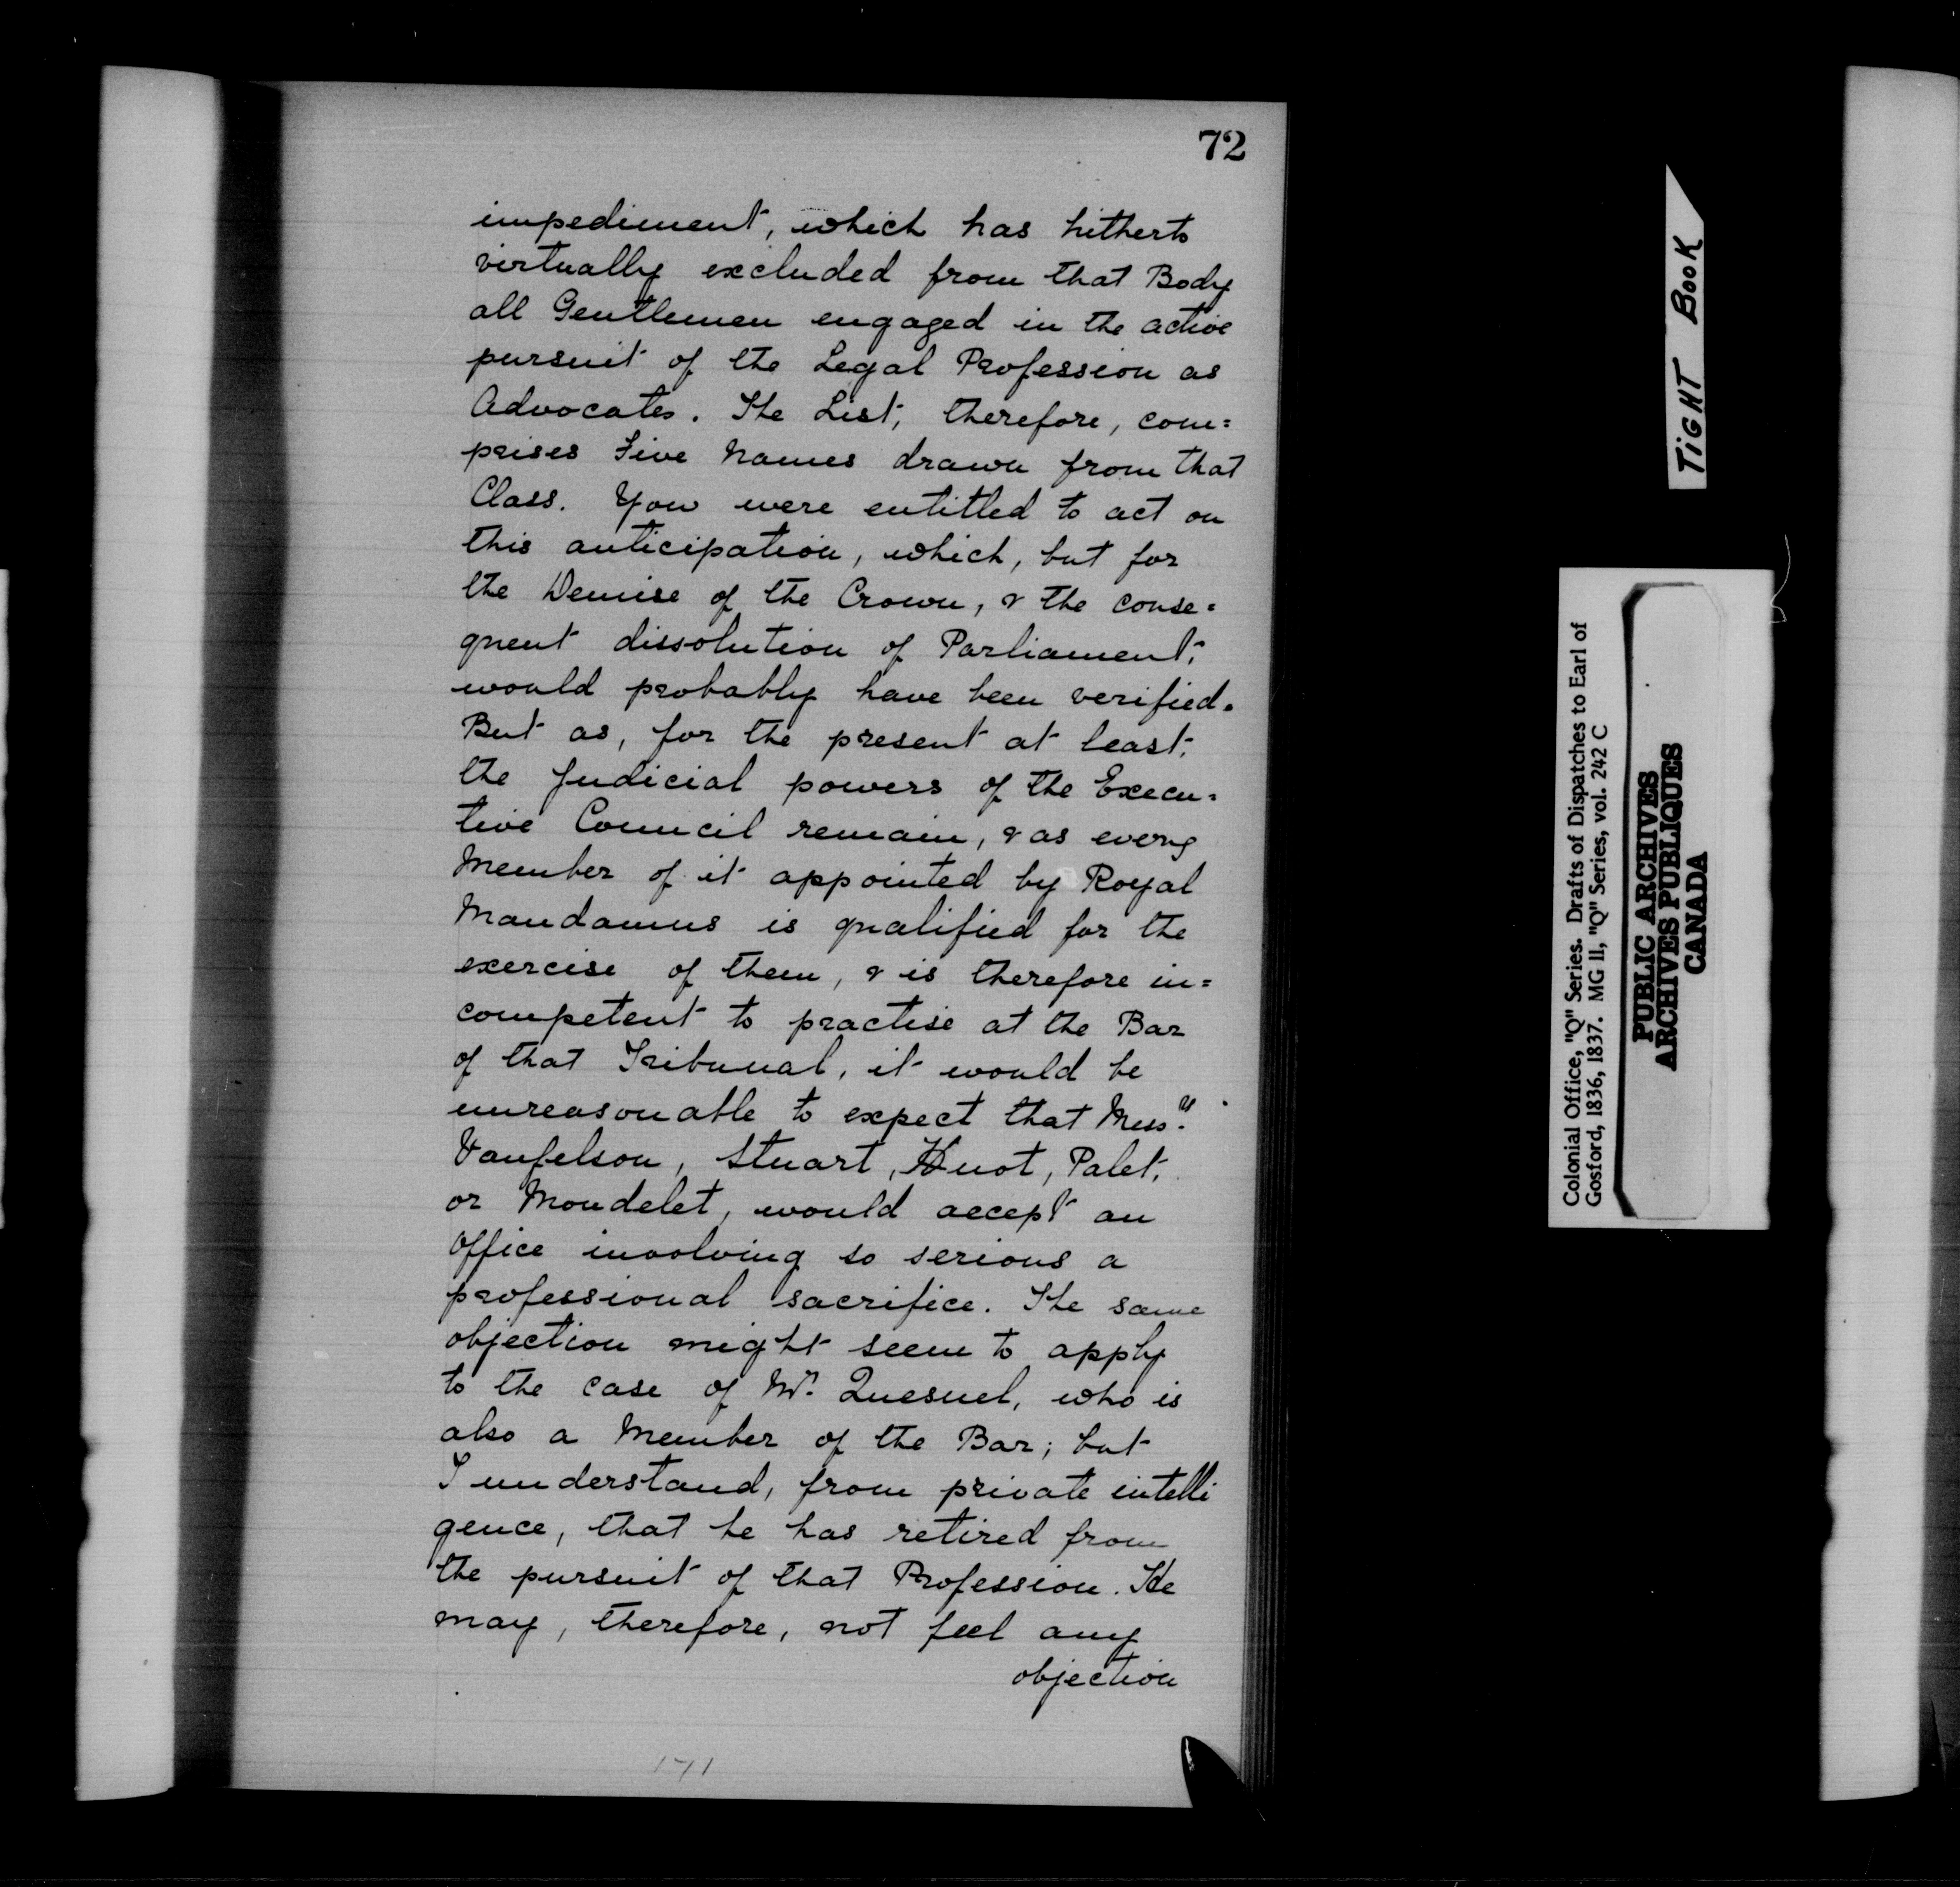 72
impediment, which has hitherto
virtually excluded from that Body
all Gentlemen engaged in the active
pursuit of the Legal Profession as
Advocates. The List, therefore, com=
prises Five Names drawn from that
Class. You were entitled to act on
this anticipation, which, but for
the Demise of the Crown, & the conse=
quent dissolution of Parliament,
would probably have been verified.
But as, for the present at least,
the Judicial powers of the Execu=
tive Council remain, & as every
Member of it appointed by Royal
Mandamus is qualified for the
exercise of them, & is therefore in=
competent to practise at the Bar
of that Tribunal, it would be
unreasonable to expect that Mess.rs
Vanfelson, Stuart, Huot, Palet,
or Mondelet, would accept an
Office involving so serious a
professional sacrifice. The same
objection might seem to apply
to the case of Mr. Quesnel, who is
also a Member of the Bar; but
I understand, from private intelli
gence, that he has retired from
the pursuit of that Profession. He
may, therefore, not feel any
objection
171
TIGHT BOOK
Colonial Office, "Q" Series. Drafts of Dispatches to Earl of
Gosford, 1836, 1837. MG II, "Q" Series, vol. 242 C
PUBLIC ARCHIVES
ARCHIVES PUBLIQUES
CANADA